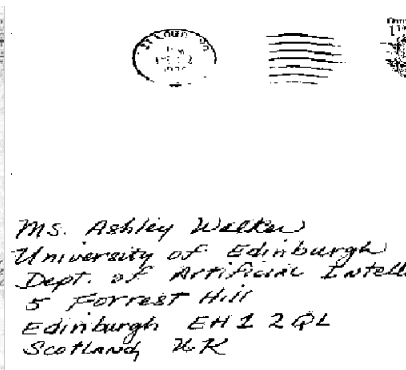 Ms. Ashley Walker
University of Edinburgh
Dept. of Artificial
5 Forrest Hill
Edinburgh EH1 2QL
Scotland UK